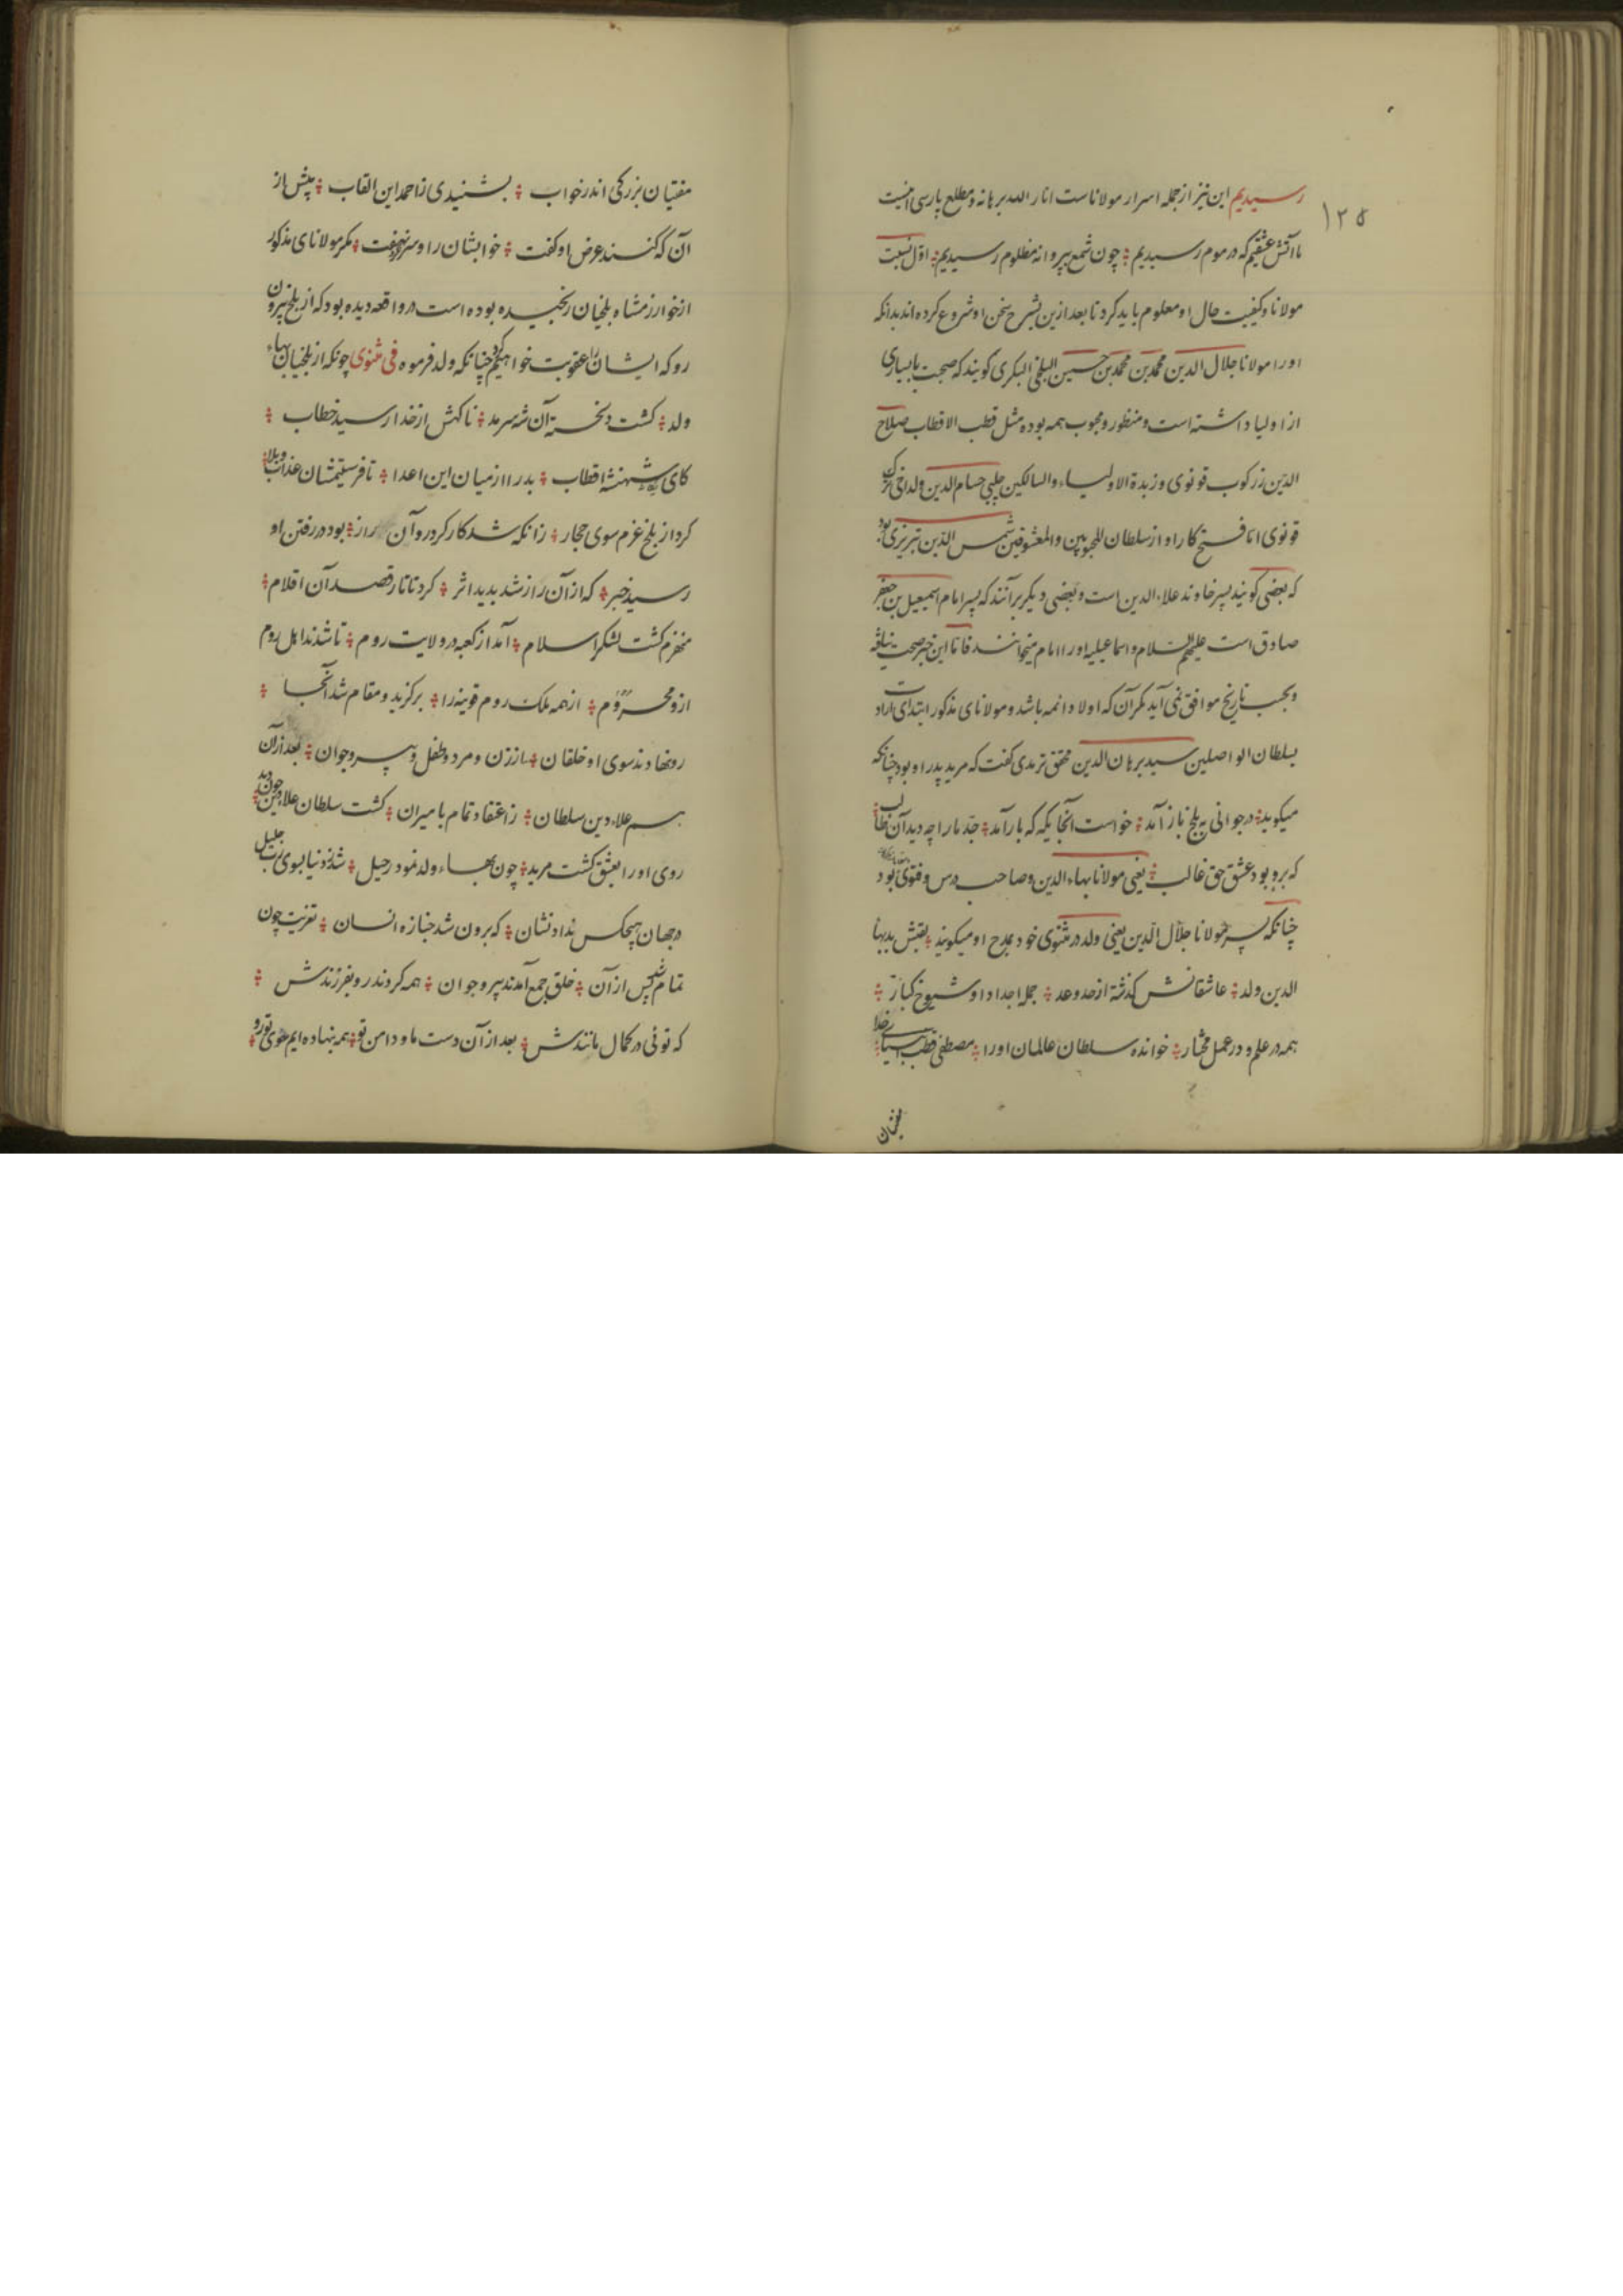 ۱۲۵
رسیدیم این نیز از جمله اسرار مولاناست انار الله برهانه و مطلع پارسی اینست
ما آتش عشقیم که در موم رسیدیم چون شمع بپروانه مظلوم رسیدیم اول نسبت
مولانا و کیفیت حال او معلوم باید کرد تا بعد ازین بشرح سخن او شروع کرده اند بدانکه
اورا مولانا جلال الدین محمد بن محمد بن حسین البلخی البکری کویند که صحبت بابسیاری
از اولیا داشته است و منظور و محبوب همه بوده مثل قطب الاقطاب صلاح
الدین زرکوب قونوی و زبدة الاولیاء والسالکین چلبی حسام الدین ولد اخی ترک
قونوی اما فتح کار او از سلطان المحبوبین والمعشوقین شمس الدین تبریزی بود
که بعضی کویند پسر خاوند علاء الدین است و بعضی دیکر برآنند که پسر امام اسمعیل بن جعفر
صادق است علیهم السلام و اسماعیلیه اورا امام میخوانند فاما این خبر صحت نیافته
و بحسب تاریخ موافق نمی آید مکر آن که اولاد ائمه باشد و مولانای مذکور ابتدای ارادت
بسلطان الواصلین سید برهان الدین محقق ترمدی کفت که مرید پدر او بود چنانکه
میکوید در جوانی به بلخ باز آمد خواست آنجایکه که بار آمد جد مارا چه دید آن طالب
که برو بود عشق حق غالب یعنی مولانا بهاء الدین و صاحب درس و فتوی بود
چنانکه پسر مولانا جلال الدین یعنی ولد در مثنوی خود بمدح او میکویند لقبش بد بها
الدین ولد عاشقانش کذشته از حد و عد جمله اجداد او شیوخ کبار
همه در علم و در عمل مختار خوانده سلطان عالمان اورا مصطفی قطب انبیای خدا
مفتیان
مفتیان بزرکی اندر خواب بشنیدی زاحمد این القاب پیش از
آن که کنند عرض او کفت خوابشان را و سر نهفت مکر مولانای مذکور
از خوارزمشاه بلخیان رنجیده بوده است در واقعه دیده بود که از بلخ بیرون
رو که ایشان را عقوبت خواهیم کرد چنانکه ولد فرموه فی مثنوی چونکه از بلخیان بهاء
ولد کشت دلخسته آن شه سرمد ناکهش از خدا رسید خطاب
کای شهنشه اقطاب بدر آ از میان این اعدا تا فرستیمشان عذاب و بلا
کرد از بلخ عزم سوی حجاز زانکه شد کارکر در و آن راز بود در رفتن او
رسید خبر که از آن راز شد بدید اثر کرد تاتار قصد آن اقلام
منهزم کشت لشکر اسلام آمد از کعبه در ولایت روم تا شدند اهل روم
ازو محروم از همه ملک روم قونیه را برکزید و مقام شد آنجا
رو نهادند سوی او خلقان از زن و مرد و طفل و پیر و جوان بعد ازان
هم علاء دین سلطان ز اعتقاد تمام با میران کشت سلطان علاء دین چون دید
روی اورا بعشق کشت مرید چون بهاء ولد نمود رحیل شد ز دنیا بسوی رب جلیل
در جهان هیچکس نداد نشان که برون شد جنازه انسان تعزیت چون
تمام شد پس از آن خلق جمع آمدند پیر و جوان همه کردند رو بفرزندش
که توئی در کمال مانندش بعد از آن دست ما و دامن تو همه بنهاده ایم سوی تو رو